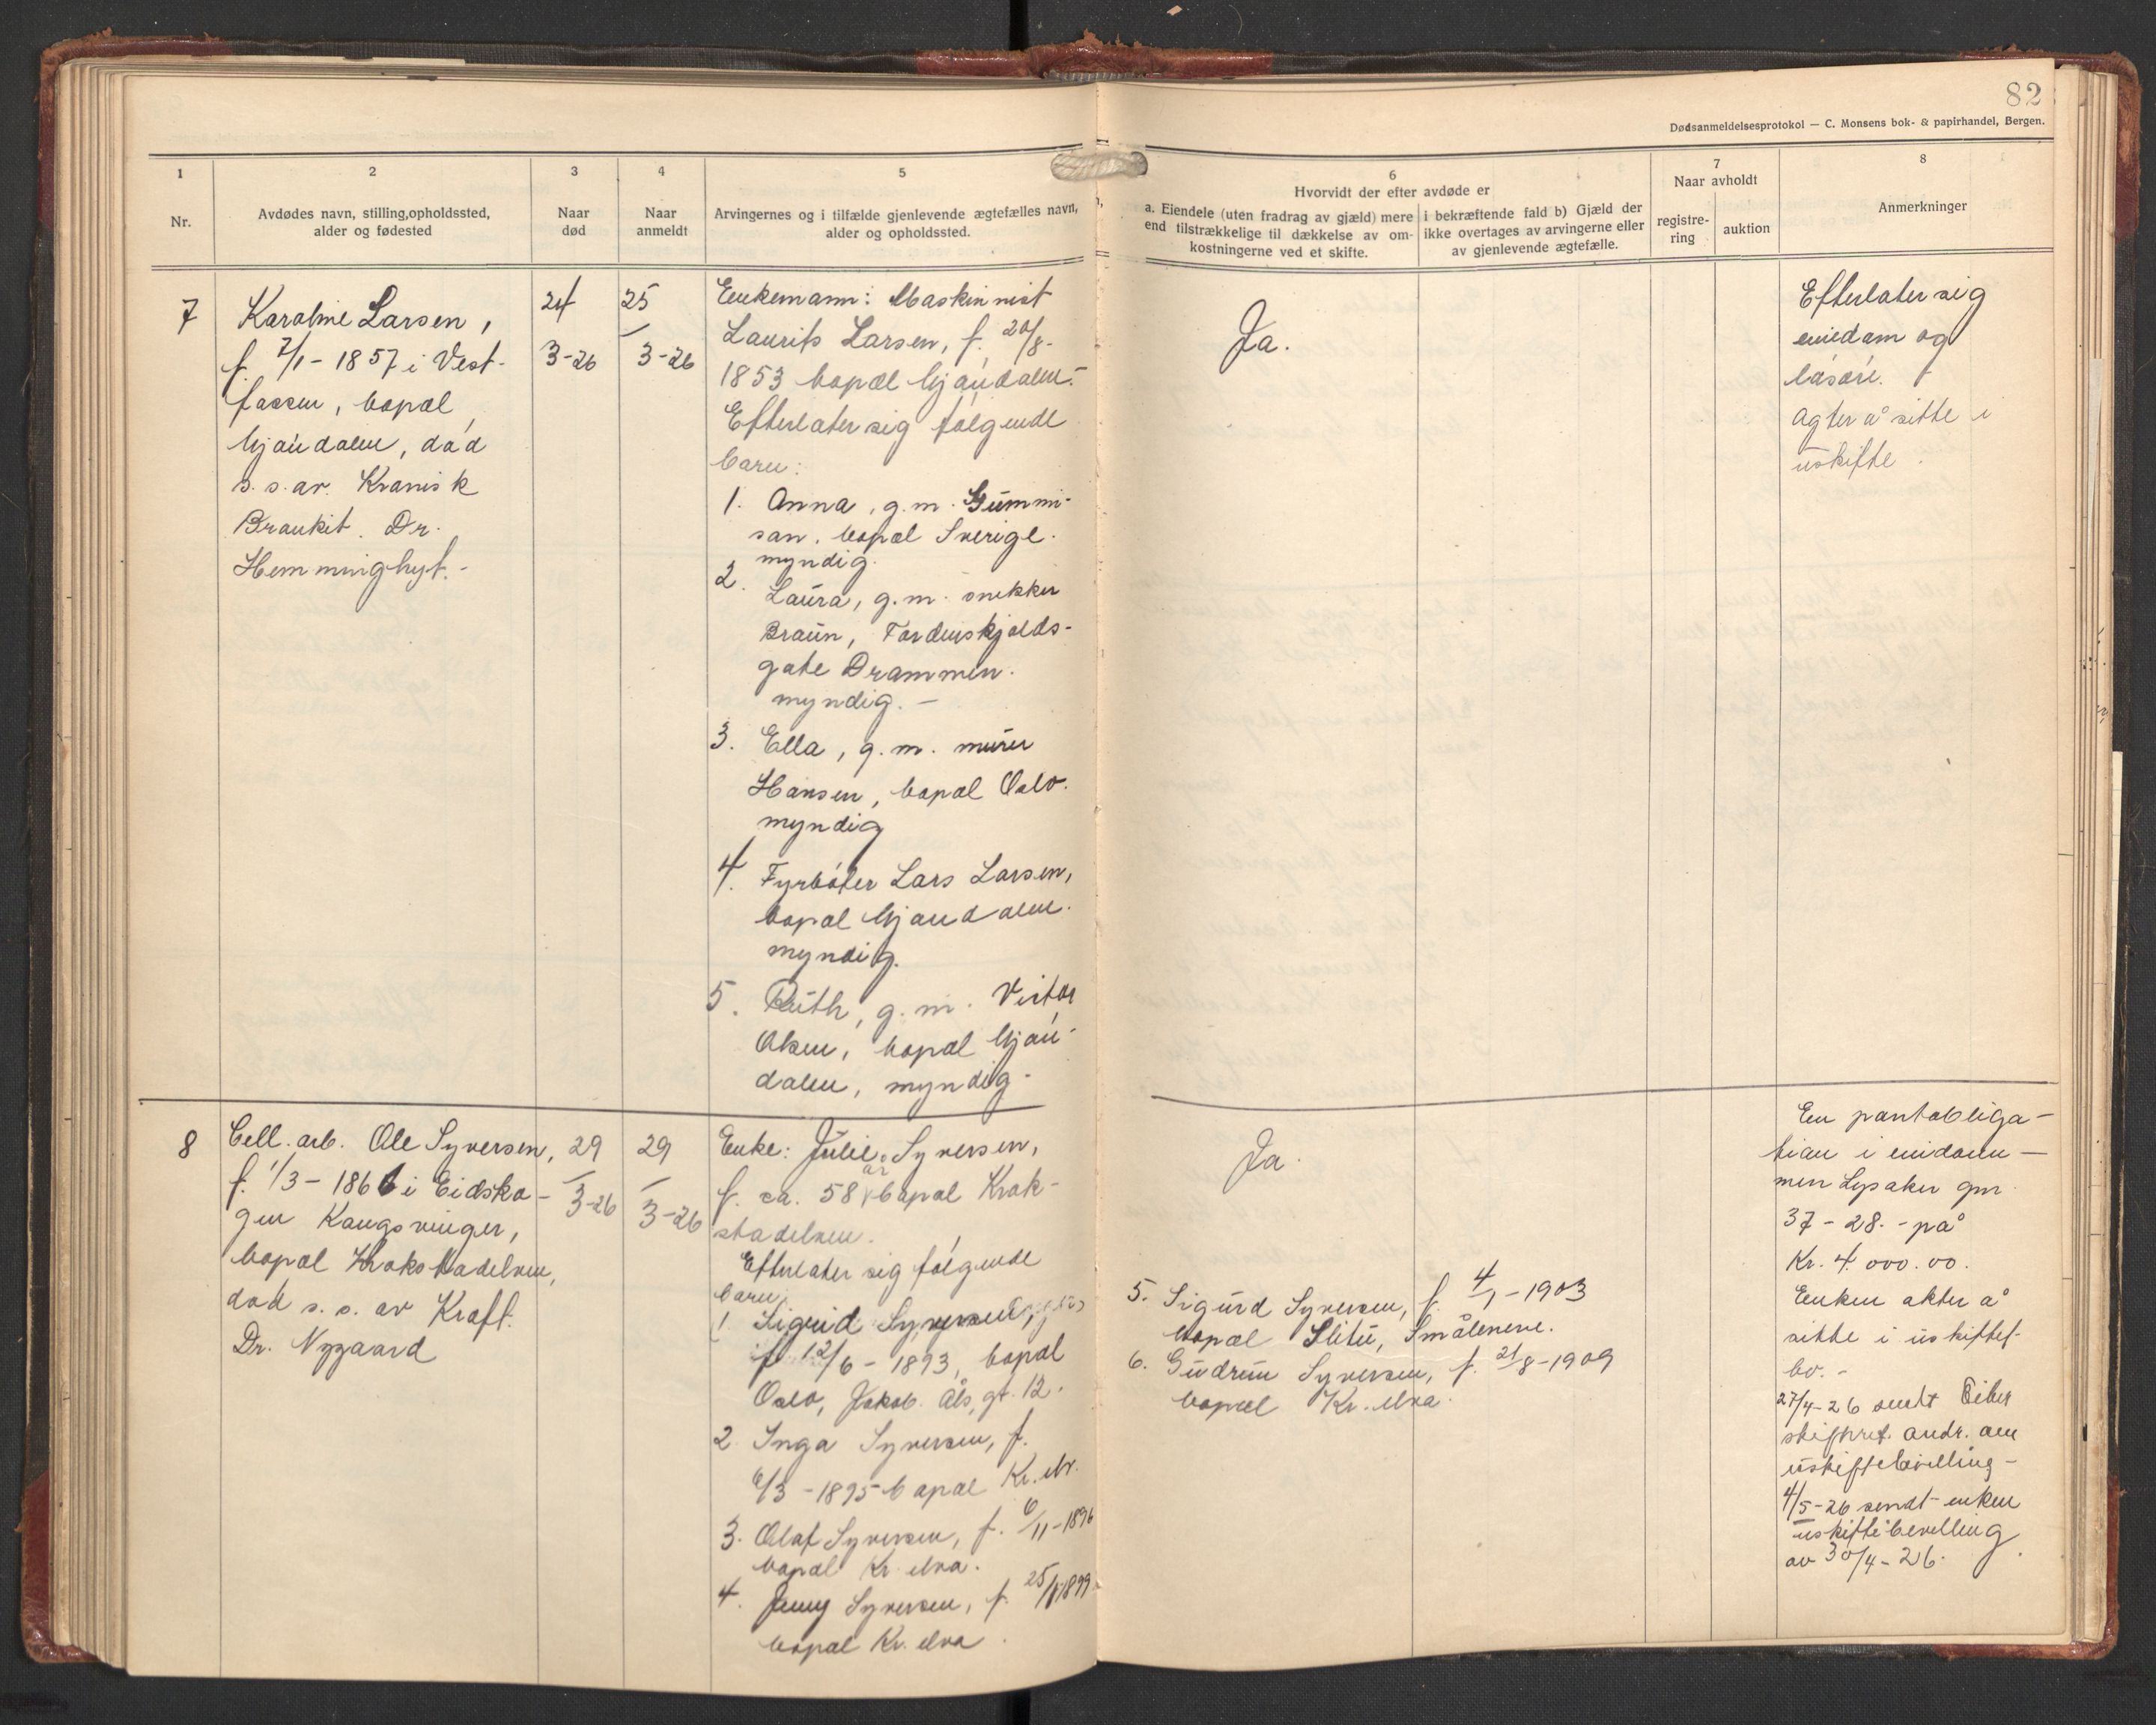 82
Dødsanmeldelsesprotokol — C. Monsens bok- & papirhandel, Bergen.
1
Nr.
2
Avdødes navn, stilling, opholdssted,
alder og fødested
3
Naar
død
4
Naar
anmeldt
5
Arvingernes og i tilfælde gjenlevende ægtefælles navn,
alder og opholdssted.
6
Hvorvidt der efter avdøde er
a. Eiendele (uten fradrag av gjæld) mere
end tilstrækkelige til dækkelse av om-
kostningerne ved et skifte.
i bekræftende fald b) Gjæld der
ikke overtages av arvingerne eller
av gjenlevende ægtefælle.
7
Naar avholdt
registre-
ring
auktion
8
Anmerkninger
7
Karoline Larsen,
f. 7/1 - 1857 i Vest-
fossen, bopæl
Mjøndalen, død
s. s. av Kronisk
Bronkit. Dr.
Hemminghyt.-
24
3-26
25
3-26
Enkemann: Maskinist
Laurits Larsen, f. 20/8-
1853 bopæl Mjøndalen.-
Efterlater sig følgende
barn:
1. Anna, g.m. Gummi-
san. bopæl Sverige.
myndig.
2. Laura, g.m. snekker
Braun, Tordenskjolds-
gate Drammen.
myndig. -
3. Ella, g.m. murer
Hansen, bopæl Oslo.
myndig
4. Fyrbøter Lars Larsen,
bopæl Mjøndalen.
myndig.
5. Ruth, g.m. Victor
Olsen, bopæl Mjøn-
dalen, myndig.
Ja.
Efterlater sig
eiendom og
løsøre.
Agter å sitte i
uskifte.
8
Cell. arb. Ole Syversen,
f. 1/3 - 1861 i Eidsko-
gen Kongsvinger,
bopæl Krokstadelven,
død s. s. av Kræft.
Dr. Nygaard
29
3-26
29
3-26
Enke: Julie Syversen,
f. ca. 58 år bopæl Krok-
stadelven.
Efterlater sig følgende
barn:
1. Sigrid Syversen,
f. 12/6 - 1893, bopæl
Oslo, Jakob Åls gt. 12.
2. Inga Syversen, f.
6/3 - 1895 bopæl Kr. elv.
3. Olaf Syversen, f. 6/11-1896
bopæl Kr. elva.
4. Jenny Syversen, f. 1899
bopæl Kr. elva.
Ja.
5. Sigurd Syversen, f. 4/1 - 1903
bopæl Slitu, Smålenene.
6. Gudrun Syversen, f. 21/8-1909
bopæl Kr. elva.
En pantobliga-
tion i eiendom-
men Lysaker gnr
37 - 28. - på
Kr. 4.000.00.
Enken akter å
sitte i uskiftet
bo. -
27/4-26 sendt Eiker
skifteret. andr. om
uskiftebevilling -
4/5-26 sendt enken
uskiftebevilling
av 30/4-26.